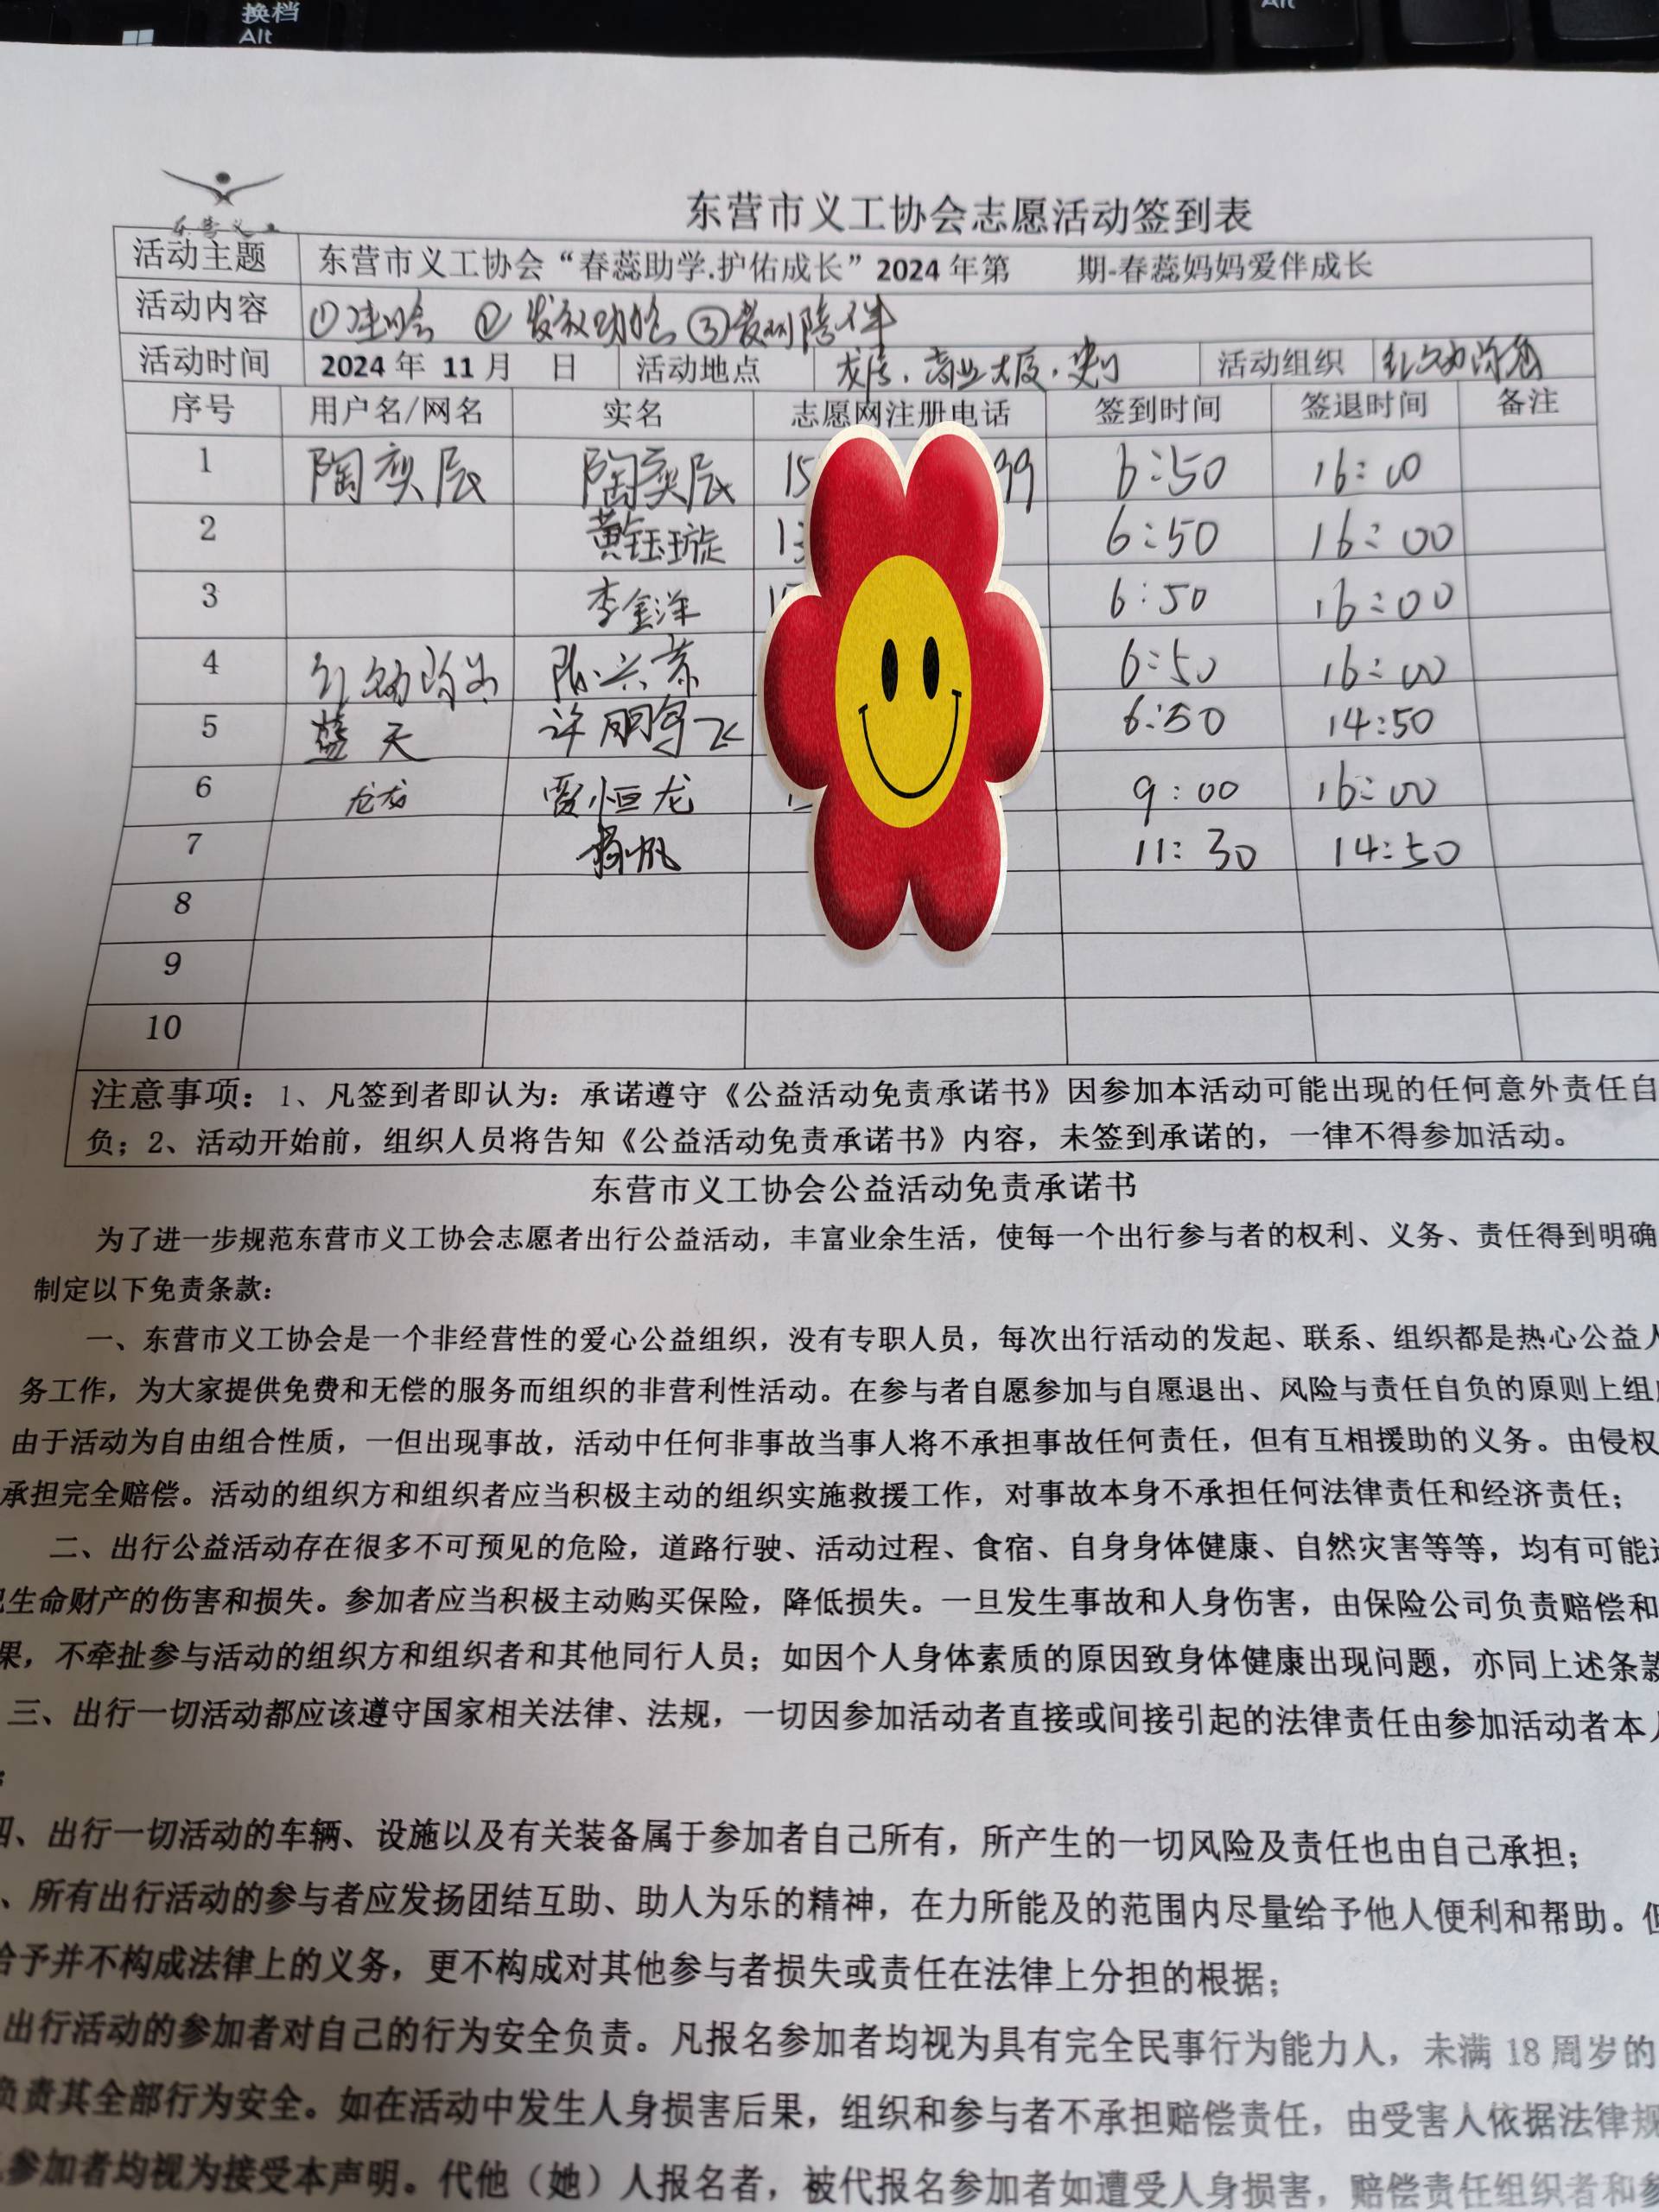 换档
Alt
Alt
东营义工
东营市义工协会志愿活动签到表
活动主题 东营市义工协会“春蕊助学.护佑成长”2024 年第 期-春蕊妈妈爱伴成长
活动内容 ① ② 发放 ③ 陪伴
活动时间 2024 年 11 月 日 活动地点 龙居、商业大厦、 活动组织
序号 用户名/网名 实名 志愿网注册电话 签到时间 签退时间 备注
1 陶奕辰 陶奕辰 15 99 6:50 16:00
2 黄钰璇 13 6:50 16:00
3 李金洋 6:50 16:00
4 6:50 16:00
5 蓝天 许 6:50 14:50
6 龙龙 贾恒龙 9:00 16:00
7 杨帆 11:30 14:50
8
9
10
注意事项：1、凡签到者即认为：承诺遵守《公益活动免责承诺书》因参加本活动可能出现的任何意外责任自
负；2、活动开始前，组织人员将告知《公益活动免责承诺书》内容，未签到承诺的，一律不得参加活动。
东营市义工协会公益活动免责承诺书
为了进一步规范东营市义工协会志愿者出行公益活动，丰富业余生活，使每一个出行参与者的权利、义务、责任得到明确
制定以下免责条款：
一、东营市义工协会是一个非经营性的爱心公益组织，没有专职人员，每次出行活动的发起、联系、组织都是热心公益人
务工作，为大家提供免费和无偿的服务而组织的非营利性活动。在参与者自愿参加与自愿退出、风险与责任自负的原则上组
由于活动为自由组合性质，一但出现事故，活动中任何非事故当事人将不承担事故任何责任，但有互相援助的义务。由侵权
承担完全赔偿。活动的组织方和组织者应当积极主动的组织实施救援工作，对事故本身不承担任何法律责任和经济责任；
二、出行公益活动存在很多不可预见的危险，道路行驶、活动过程、食宿、自身身体健康、自然灾害等等，均有可能
生命财产的伤害和损失。参加者应当积极主动购买保险，降低损失。一旦发生事故和人身伤害，由保险公司负责赔偿和
果，不牵扯参与活动的组织方和组织者和其他同行人员；如因个人身体素质的原因致身体健康出现问题，亦同上述条款
三、出行一切活动都应该遵守国家相关法律、法规，一切因参加活动者直接或间接引起的法律责任由参加活动者本人
；
四、出行一切活动的车辆、设施以及有关装备属于参加者自己所有，所产生的一切风险及责任也由自己承担；
、所有出行活动的参与者应发扬团结互助、助人为乐的精神，在力所能及的范围内尽量给予他人便利和帮助。但
给予并不构成法律上的义务，更不构成对其他参与者损失或责任在法律上分担的根据；
出行活动的参加者对自己的行为安全负责。凡报名参加者均视为具有完全民事行为能力人，未满 18 周岁的
负责其全部行为安全。如在活动中发生人身损害后果，组织和参与者不承担赔偿责任，由受害人依据法律规
参加者均视为接受本声明。代他（她）人报名者，被代报名参加者如遭受人身损害，赔偿责任组织者和参